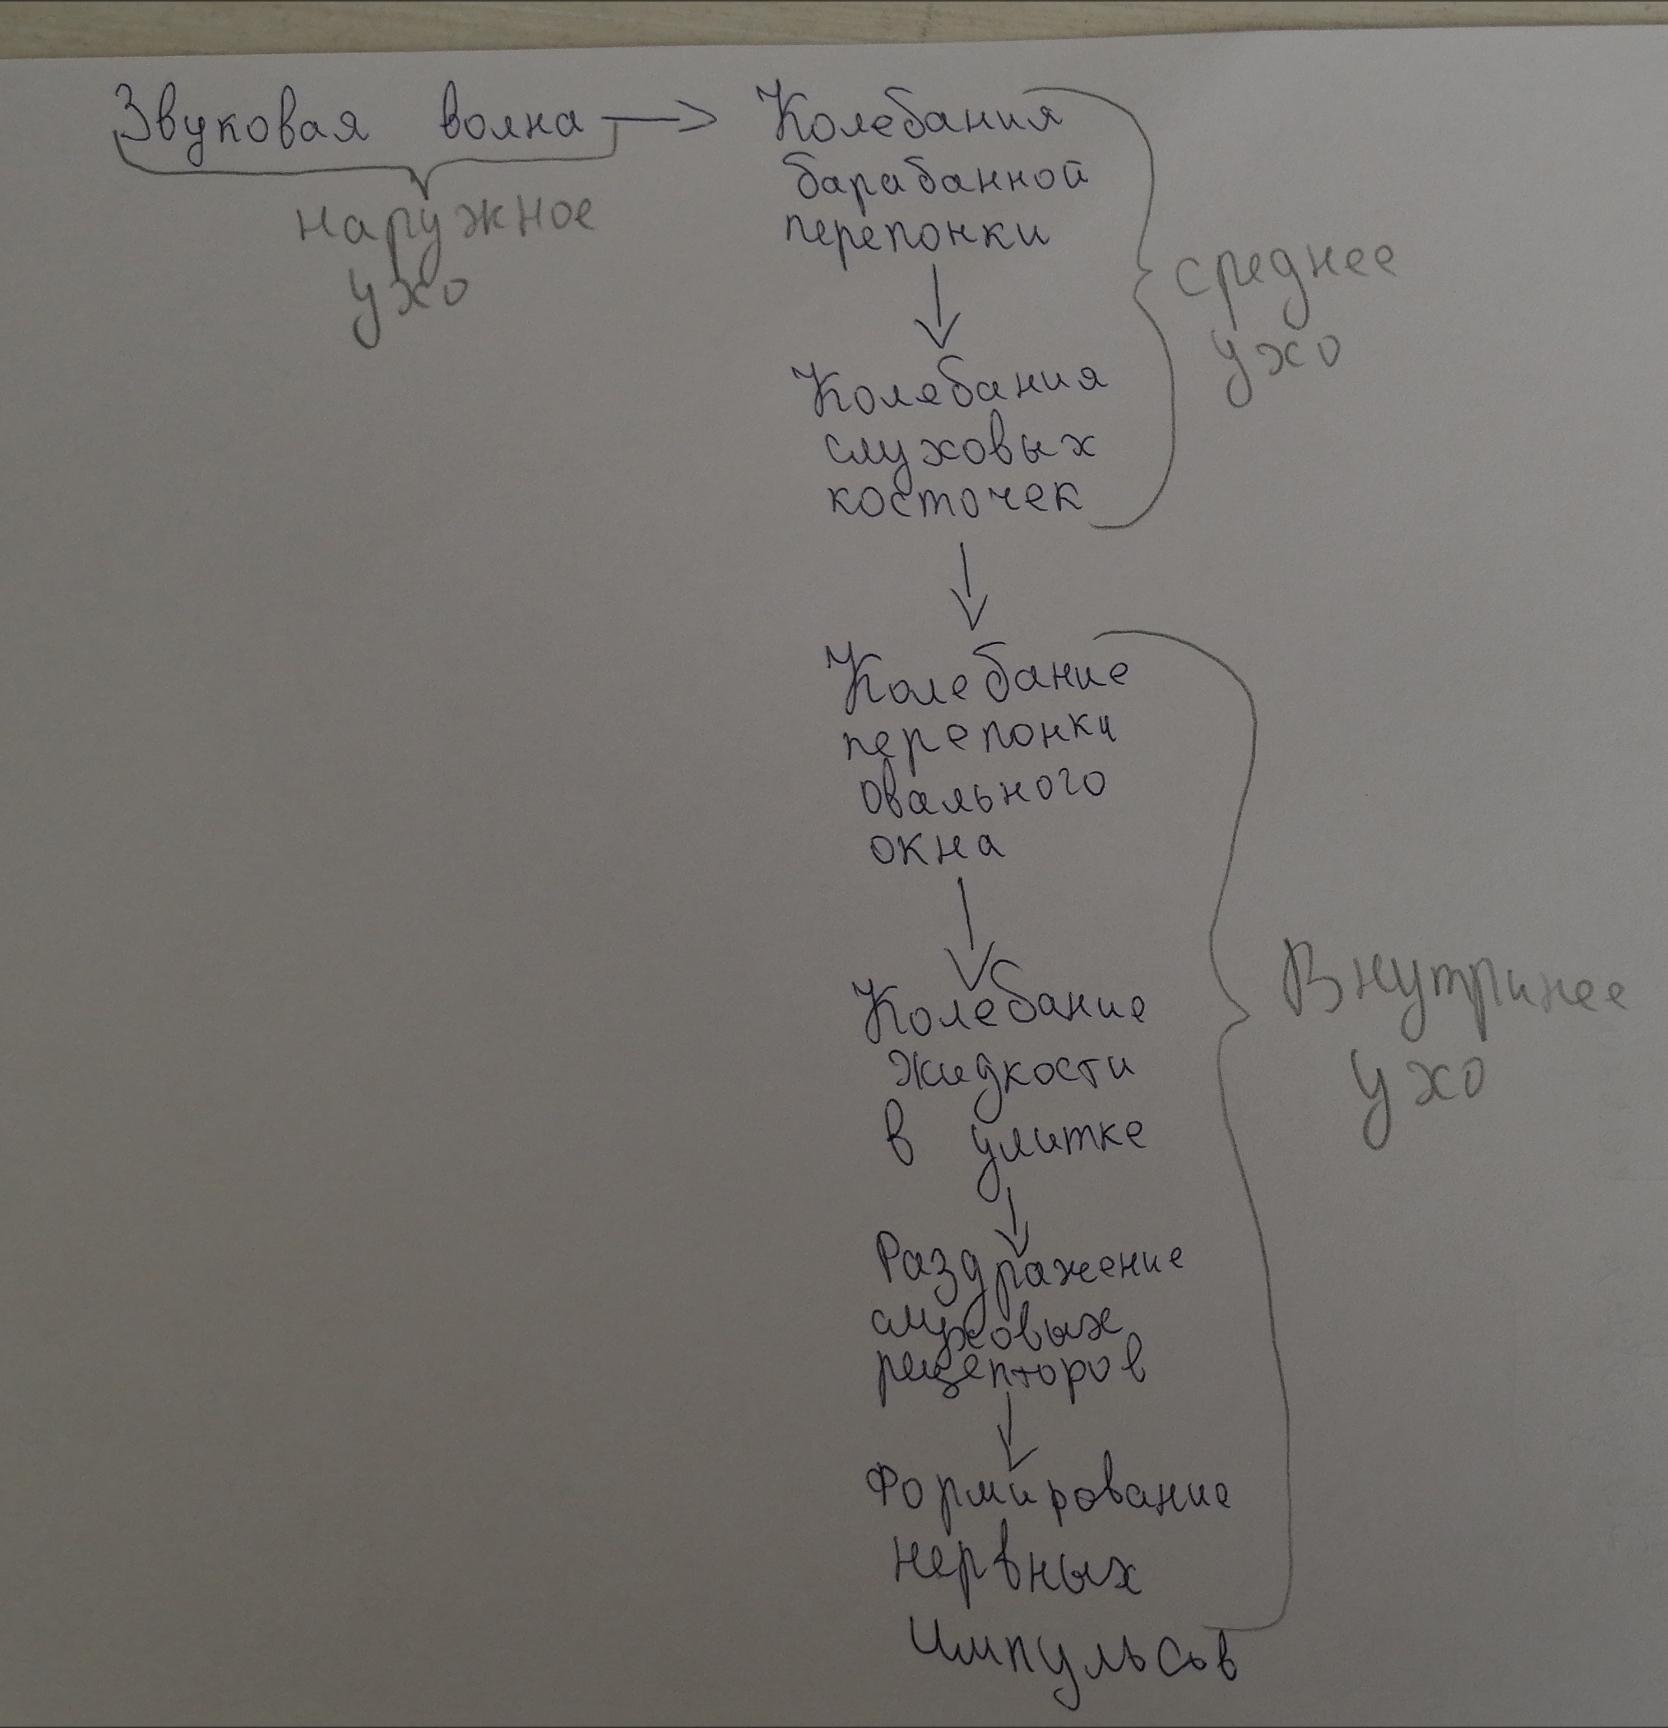 Звуковая волна
наружное
ухо
Колебания
барабанной
перепонки
среднее
ухо
Колебания
слуховых
косточек
Колебание
перепонки
овального
окна
Колебание
жидкости
в улитке
Внутринее
ухо
Раздражение
слуховых
рецепторов
Формирование
нервных
импульсов